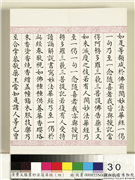 如是等類咸於佛前聞妙法華經一偈
一句乃至一念隨喜者我皆與授記當
得阿耨多羅三藐三菩提佛告藥王又
如來滅度之後若有人聞妙法華經乃
至一偈一句一念隨喜者我亦與授阿
耨多羅三藐三菩提記若復有人受持
讀誦解說書寫妙法華經乃至一偈於
此經卷敬視如佛種種供養華香瓔珞
末香塗香燒香繒蓋幢幡衣服伎樂乃
至合掌恭敬藥王當知是諸人等
30